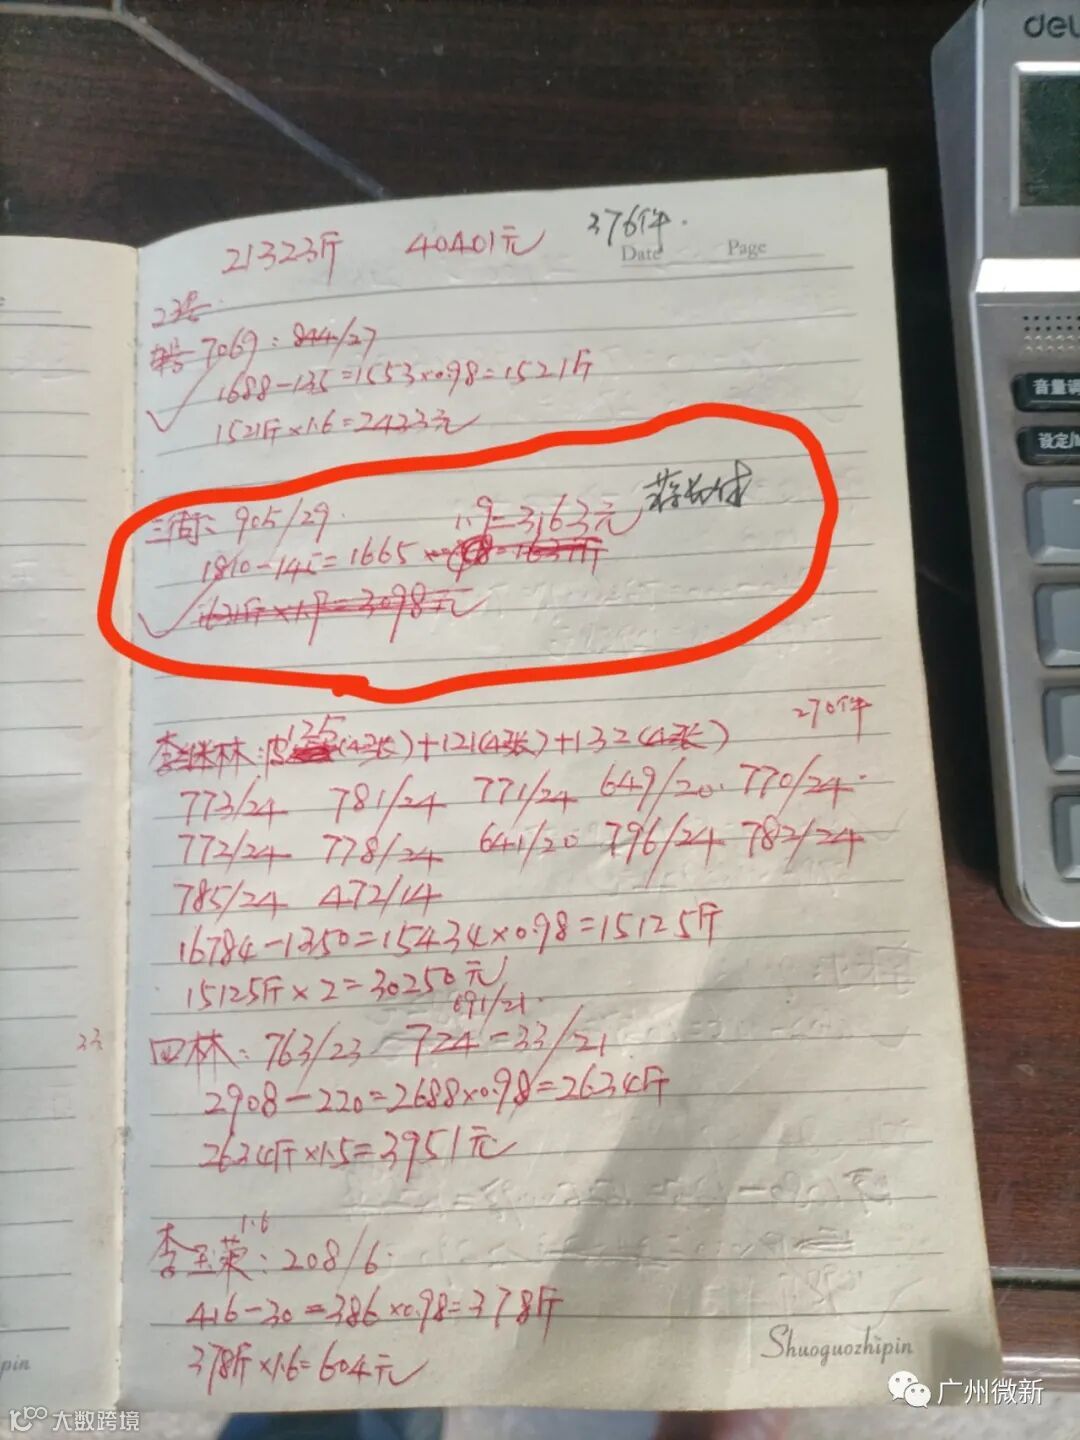 deli
音量调
设定/M
21323斤 40401元 376件.
Date Page
7069: 844/27
1688-135=1553×0.98=1521斤
1521斤×1.6=2433元
三街: 905/29. 1.9=3163元
1810-145=1665×0.98=1631斤
1631斤×1.9=3098元
270件
李继林:皮125(4张)+121(4张)+132(4张)
773/24 781/24 771/24 649/20. 770/24.
772/24 778/24 641/20 796/24 782/24
785/24 472/14
16784-1350=15434×0.98=15125斤
15125斤×2=30250元
691/21.
四林: 763/23 724-33/21
2908-220=2688×0.98=2634斤
2634斤×1.5=3951元
1.6
李玉荣: 208/6.
416-30=386×0.98=378斤
378斤×1.6=604元
Shuoguozhipin
pin
广州微新
大数跨境